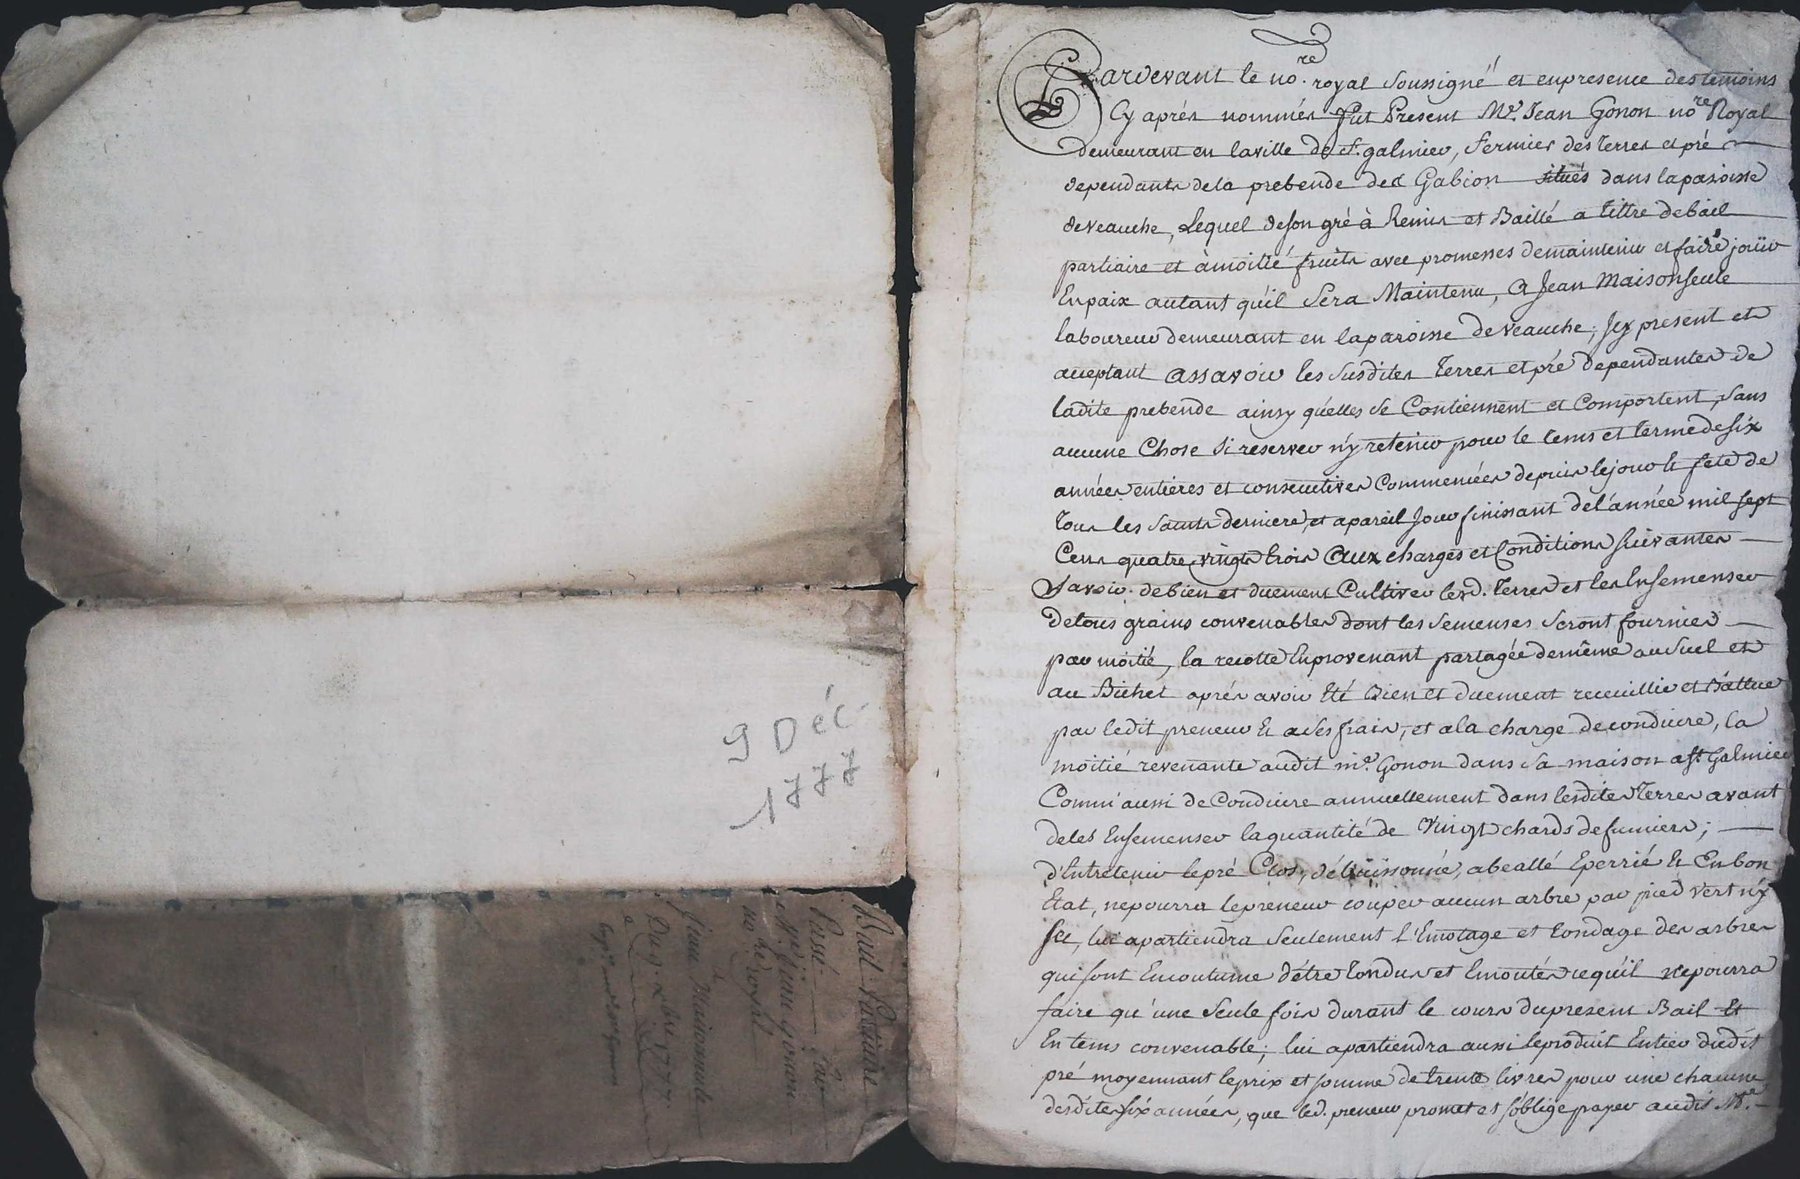 9 Déc
1777
Bail Partiaire
Passé par
Me jean gonon
no re royal
à
Jean Maisonseule
Du 9 xbre 1777.
Pardevant le no.re royal soussigné et enpresence des temoins
Cy aprés nommés fut Present Me. Jean Gonon nore Royal
demeurant en laville de St. galmier, fermier des terres et pré
dependants dela prebende des Gabion situés dans laparoisse
deveauche, Lequel deson gré à Remis et Baillé a tittre debail
partiaire et àmoitié fruits avec promesses demaintenir et faire joüir
Enpaix autant qu'il Sera Maintenu, a Jean Maisonseule
laboureur demeurant en laparoisse deveauche; Jcy present et
acceptant assavoir les susdites terres et pré dependantes de
ladite prebende ainsy qu'elles se Contiennent et comportent, sans
aucune Chose si reserver n'y retenir pour le tems et terme desix
années entieres et consecutives Commencées depuis lejour & fete de
tous les saints derniere, et apareil Jour finissant del'année mil sept
Cens quatre vingts trois aux charges et Conditions suivantes
Savoir. debien et duement Cultiver lesd. terres et les Ensemenser
detous grains convenables dont les semenses seront fournies
par moitié, la recotte Enprovenant partagée demême au suel et
au Bichet aprés avoir Eté bien et duement recueuillie et Battue
par ledit preneur & ases frais, et ala charge deconduire, la
moitié revenante audit me. Gonon dans sa maison a St Galmier
Comm'aussi de Conduire annuellement dans lesdites terres avant
deles Ensemenser laquantité de vingt chards defumiers;
d'Entretenir lepré Clos, débuissonné, abeallé Eperrié & En bon
Etat, nepourra lepreneur couper aucun arbre par pied vert n'y
sec, lui apartiendra seulement l'Emotage et tondage des arbres
qui sont Encoutume d'être tondus et Emontés cequ'il nepourra
faire qu'une seule fois durant le cours dupresent Bail et
En tems convenable; lui apartiendra aussi leproduit Entier dudit
pré moyennant leprix et somme de trente livres pour une chacune
desdites six années, que led. preneur promet et s'oblige payer audit Me.